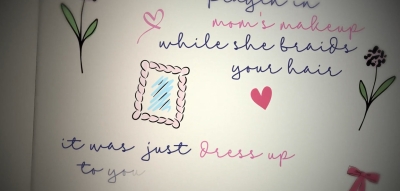 playin in
mom's makeup
while she braids
your hair
it was just dress up
to you